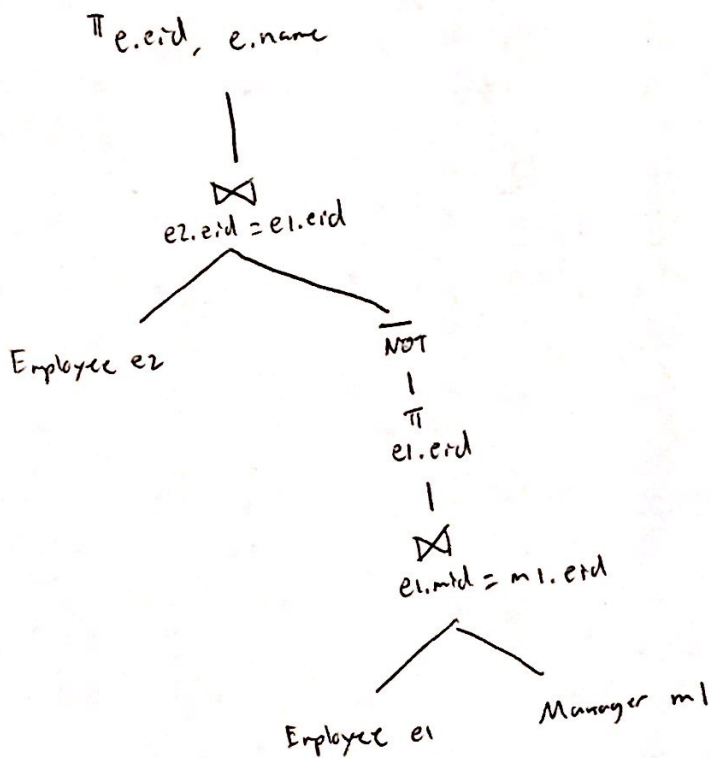 π e.eid, e.name
⋈
e2.eid = e1.eid
Employee e2
NOT
π
e1.eid
⋈
e1.mid = m1.eid
Employee e1
Manager m1